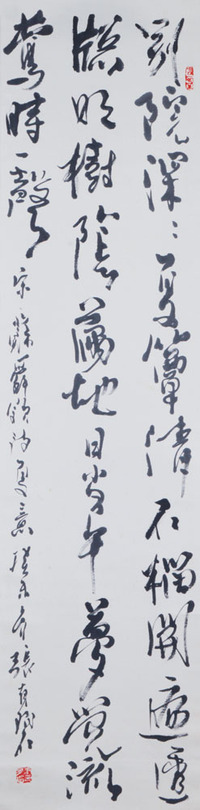 別院深深夏簟清石榴開遍透
簾明樹陰滿地日當午夢覺流
鶯時一聲 宋蘇舜欽詩夏意癸未張